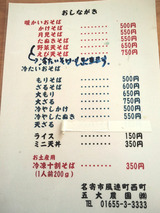 おしながき
暖かいおそば 500円
かけそば 500円
月見そば 550円
たぬきそば 550円
野菜天そば 650円
えび天そば 750円
冷たいおそば
もりそば 500円
ざるそば 550円
大もり 650円
大ざる 700円
冷やしかけ 500円
冷やしたぬき 550円
天ざる 750円
ライス 150円
ミニ天丼 350円
お土産用
冷凍十割そば 350円
(1人前200g)
名寄市風連町西町
五大農園
TEL 01655-3-3333